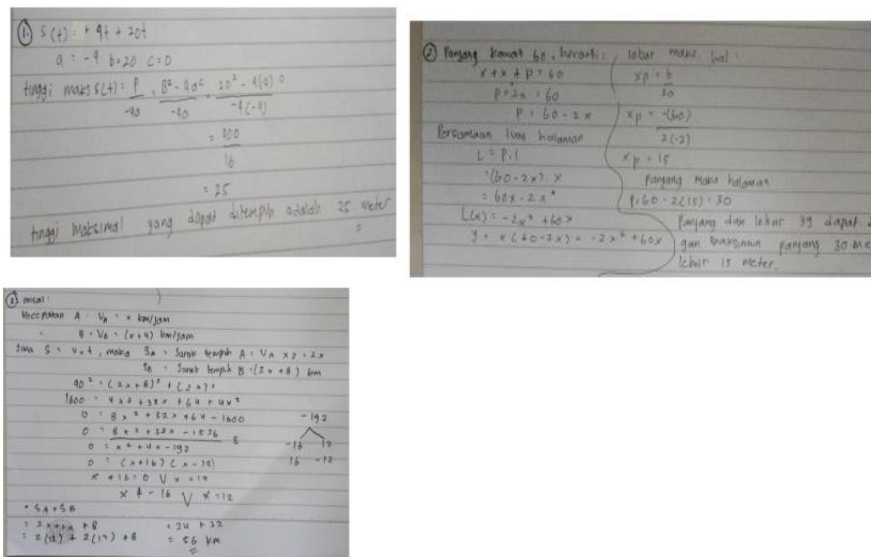 ① S(t) = + 4t + 20t
a = -4 b=20 c=0
tinggi maks S(t) = P/-4a = B² - 4ac/-4a = 20² - 4(4).0/-4(-4)
= 400/16
= 25
tinggi maksimal yang dapat ditempuh adalah 25 meter
② Panjang kawat 60, berarti:
x + x + p = 60
p + 2x = 60
p = 60 - 2x
Persamaan luas halaman
L = p.l
= (60 - 2x) . x
= 60x - 2x²
L(x) = -2x² + 60x
y = x (60 - 2x) = -2x² + 60x
lebar maks. hal :
xp = b/2a
xp = -(60)/2(-2)
xp = 15
Panjang maks halaman
p = 60 - 2(15) = 30
Panjang dan lebar yg dapat
maksimum panjang 30 me
lebar 15 meter.
misal :
Kecepatan A = VA = x km/jam
B = VB = (x+4) km/jam
Jika S = v x t, maka SA = Jarak tempuh A = VA x 2 = 2x
SB = Jarak tempuh B = (2x + 8) km
40² = (2x+8)² + (2x)²
1600 = 4x² + 32x + 64 + 4x²
0 = 8x² + 32x + 64 - 1600
0 = 8x² + 32x - 1536
8
0 = x² + 4x - 192
0 = (x+16) (x-12)
x + 16 = 0 V x = 12
x ≠ -16 V x = 12
-192
-16 12
16 -12
• SA + SB
= 2x + 2x + 8
= 2(12) + 2(12) + 8
= 24 + 32
= 56 km